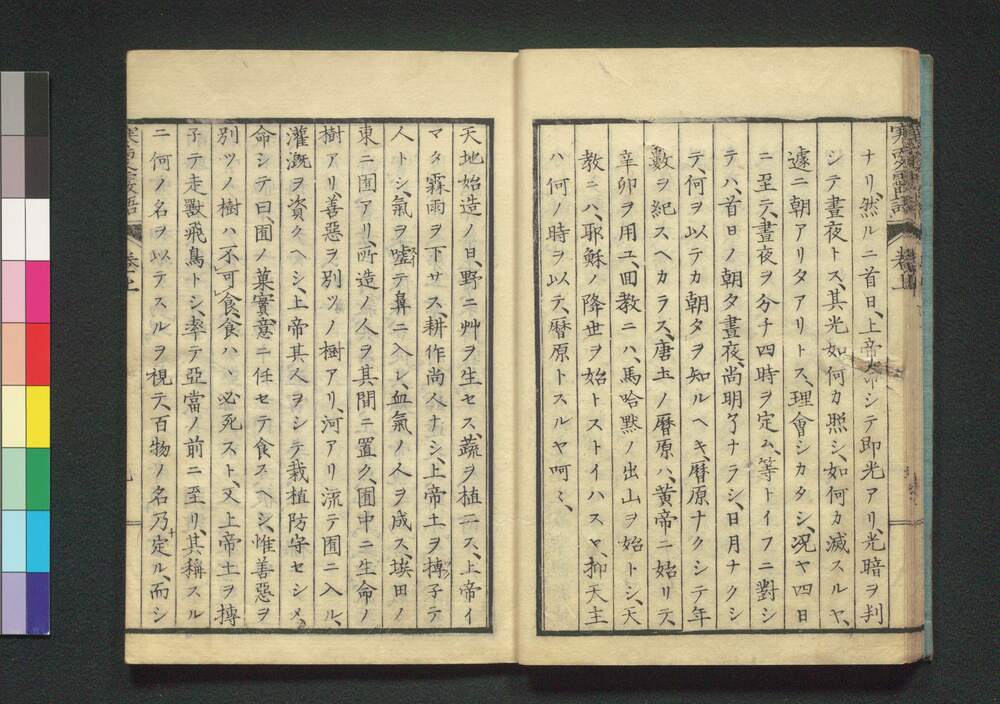 ナリ、然ルニ首日、上帝命シテ即光アリ、光暗ヲ判
シテ晝夜トス、其光如何カ照シ、如何カ滅スルヤ、
遽ニ朝アリタアリトス、理會シカタシ、况ヤ四日
ニ至テ、晝夜ヲ分チ四時ヲ定ム、等トイフニ對シ
テハ、首日ノ朝夕晝夜、尚明了ナラシ、日月ナクシ
テ、何ヲ以テカ朝夕ヲ知ルヘキ、曆原ナクシテ年
數ヲ紀スヘカラス、唐土ノ曆原ハ、黄帝ニ始リテ、
辛卯ヲ用ユ、回教ニハ、馬哈黙ノ出山ヲ始トシ、天
教ニハ、耶穌ノ降世ヲ始トストイハスヤ、抑天主
ハ何ノ時ヲ以テ、曆原トスルヤ呵〻、
天地始造ノ日、野ニ艸ヲ生セス、蔬ヲ植ヱス、上帝イ
マタ霖雨ヲ下サス、耕作尚人ナシ、上帝土ヲ摶子テ
人トシ、氣ヲ噓テ鼻ニ入レ、血氣ノ人ヲ成ス、埃田ノ
東ニ囿アリ、所造ノ人ヲ其間ニ置ク、囿中ニ生命ノ
樹アリ、善惡ヲ別ツノ樹アリ、河アリ流テ囿ニ入ル、
灌漑ヲ資クヘシ、上帝其人ヲシテ栽植防守セシメ、
命シテ曰、囿ノ菓實意ニ任セテ食スヘシ、惟善惡ヲ
別ツノ樹ハ不可食、食ハヽ必死スト、又上帝土ヲ摶
子テ走獸飛鳥トシ、率テ亞當ノ前ニ至リ、其稱スル
ニ何ノ名ヲ以テスルヲ視テ、百物ノ名乃定ル、而シ